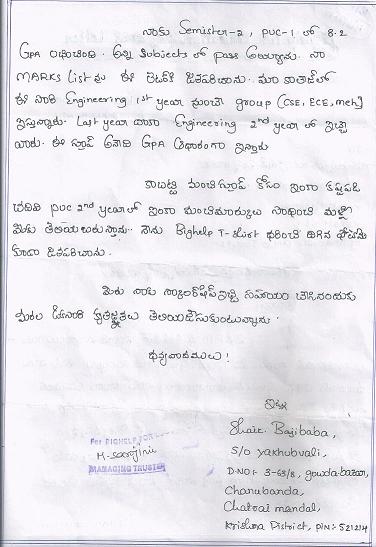 నాకు Semister-2, PUC-1 లో 8.2
GPA వచ్చింది. అన్ని Subjects లో pass అయ్యాను. నా
MARKS List ను ఈ లెటర్‌కి జతపరిచాను. మా కాలేజ్‌లో
ఈ సారి Engineering 1st year నుంచే group (CSE, ECE, Meh)
ఇస్తున్నారు. Last year వరకు Engineering 2nd year లో ఇచ్చే
వారు. ఈ గ్రూప్ అనేది GPA ఆధారంగా ఇస్తారు
కాబట్టి మంచి గ్రూప్ కోసం ఇంకా కష్టపడి
చదివి PUC 2nd year లో ఇంకా మంచి మార్కులు సాధించి మళ్ళీ
మీకు తెలియజేస్తాను. నేను Bighelp T-shirt ధరించి దిగిన ఫోటోను
కూడా జతపరిచాను.
మీరు నాకు స్కాలర్‌షిప్ ఇచ్చి సహాయం చేసినందుకు
మీకు ఓసారి కృతజ్ఞతలు తెలియజేసుకుంటున్నాను.
ధన్యవాదములు!
ఇట్లు
Shaik. Bajibaba,
S/o Yakhubvali,
D-NO:- 3-63/8, gowda bazar,
Chanubanda,
Chatrai mandal,
Krishna District, PIN:- 521214
For BIGHELP FOR
M. Sarojini
MANAGING TRUSTEE